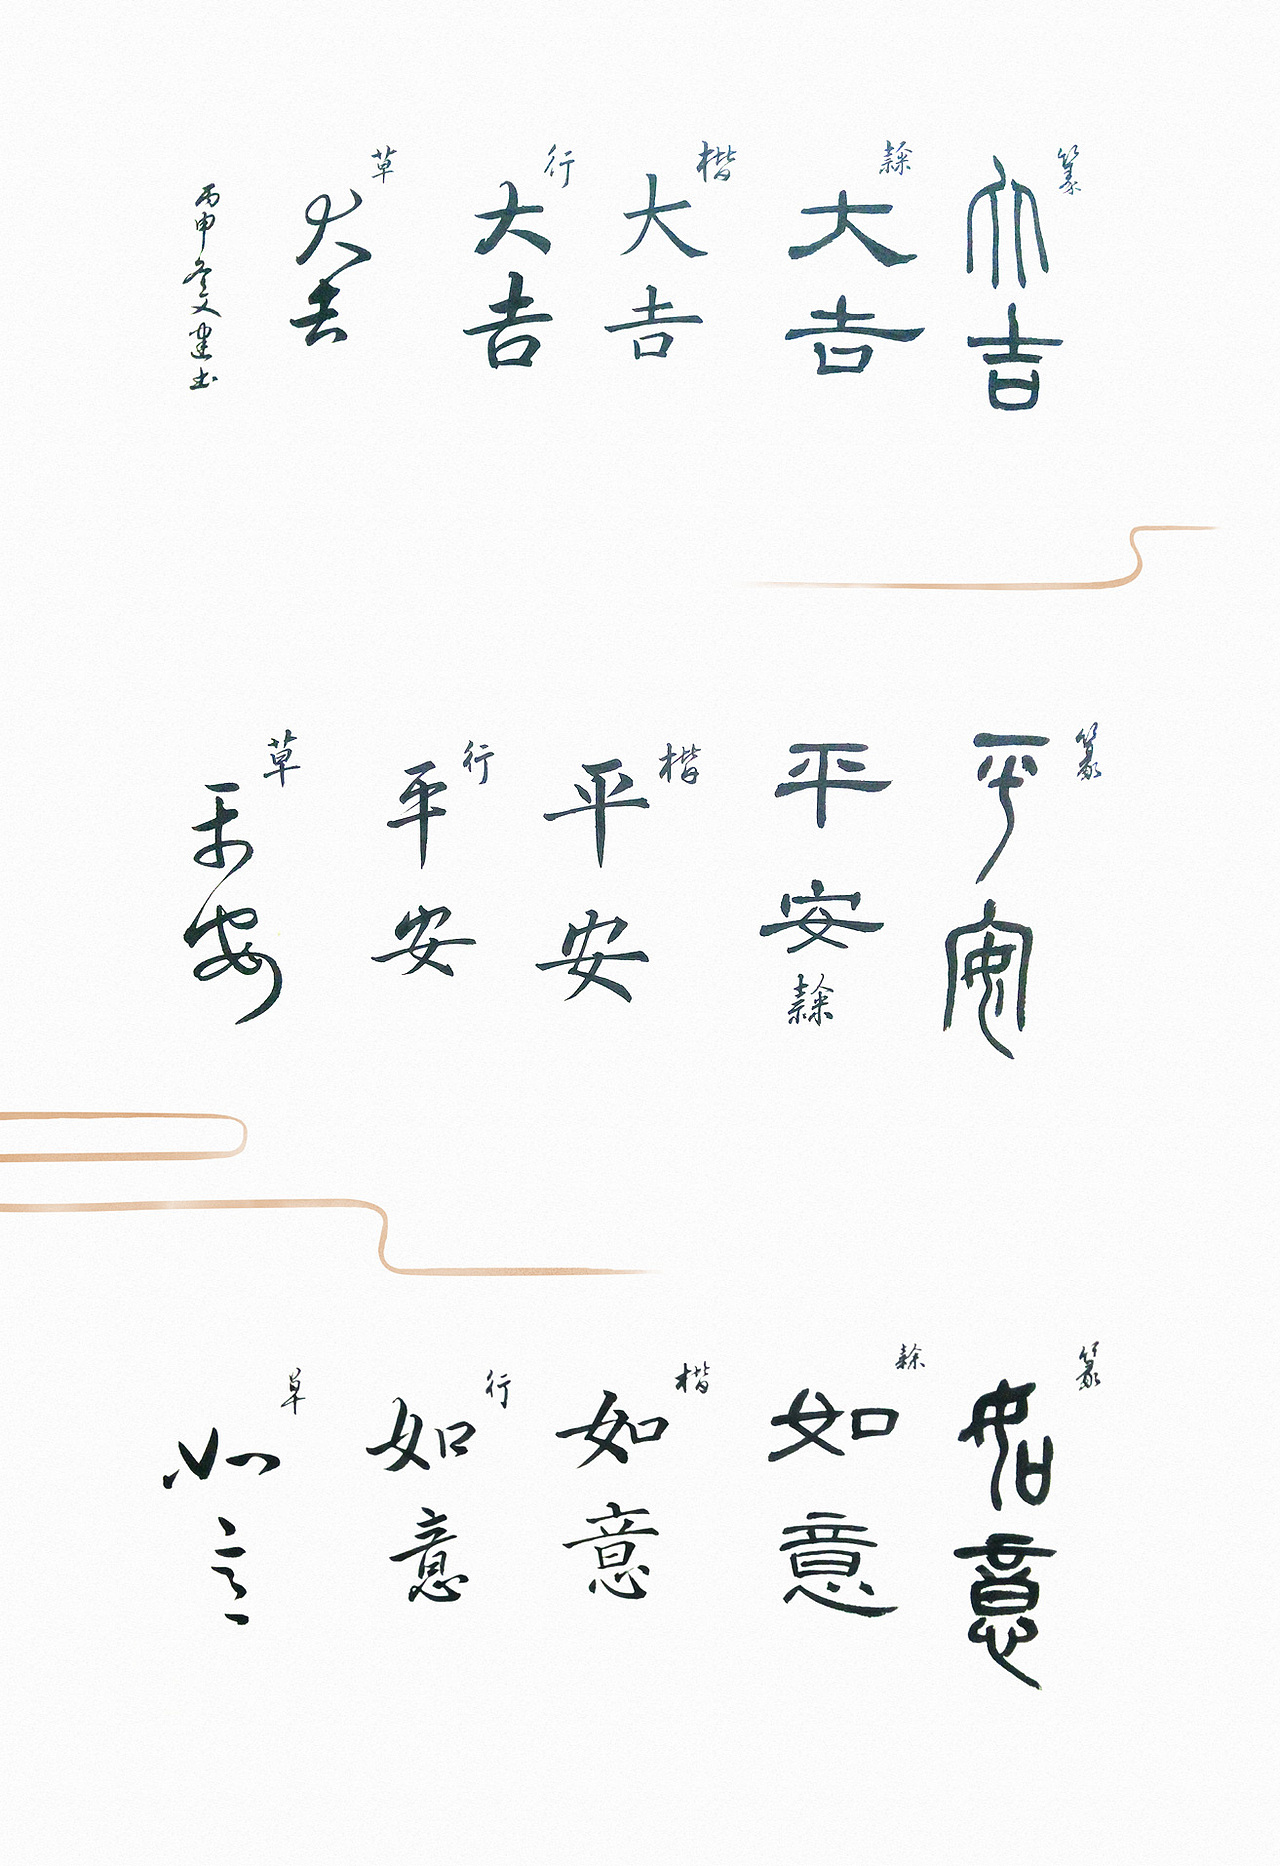 篆
大吉
隸
大吉
楷
大吉
行
大吉
草
大吉
丙申冬文建书
篆
平安
平安
隸
楷
平安
行
平安
草
平安
篆
如意
隸
如意
楷
如意
行
如意
草
如意